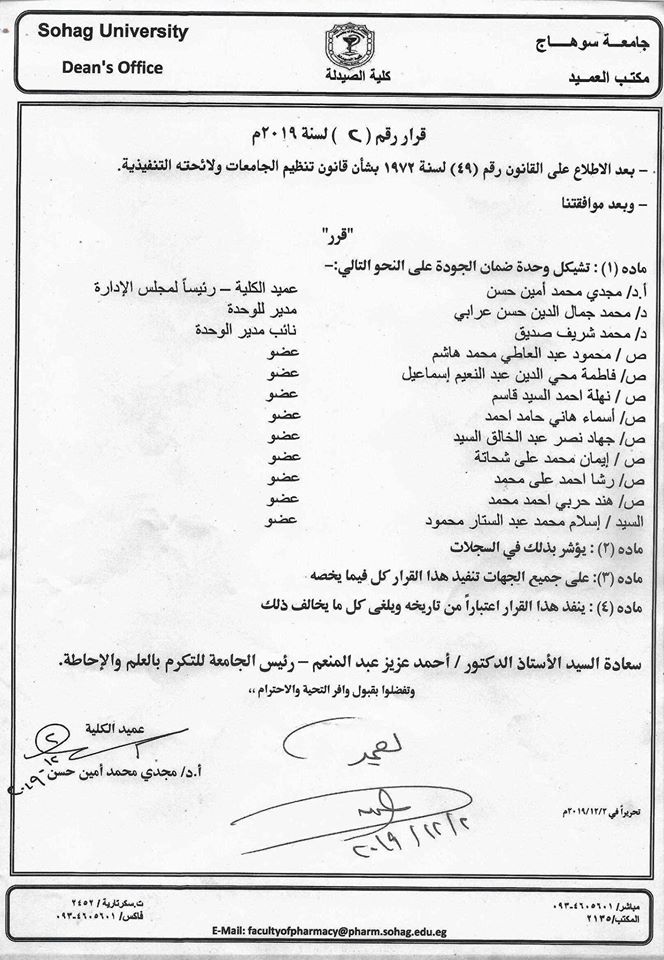 Sohag University
Dean's Office
كلية الصيدلة
جامعة سوهـــاج
مكتب العميد
قرار رقم ( ٢ ) لسنة ٢٠١٩م
– بعد الاطلاع على القانون رقم (٤٩) لسنة ١٩٧٢ بشأن قانون تنظيم الجامعات ولائحته التنفيذية.
– وبعد موافقتنا
"قرر"
ماده (١) : تشيكل وحدة ضمان الجودة على النحو التالي:–
أ.د/ مجدي محمد أمين حسن عميد الكلية – رئيساً لمجلس الإدارة
د/ محمد جمال الدين حسن عرابي مدير للوحدة
د/ محمد شريف صديق نائب مدير الوحدة
ص / محمود عبد العاطي محمد هاشم عضو
ص/ فاطمة محي الدين عبد النعيم إسماعيل عضو
ص / نهلة احمد السيد قاسم عضو
ص/ أسماء هاني حامد احمد عضو
ص/ جهاد نصر عبد الخالق السيد عضو
ص / إيمان محمد على شحاتة عضو
ص/ رشا احمد على محمد عضو
ص/ هند حربي احمد محمد عضو
السيد / إسلام محمد عبد الستار محمود عضو
ماده (٢) : يؤشر بذلك في السجلات
ماده (٣): على جميع الجهات تنفيذ هذا القرار كل فيما يخصه
ماده (٤) : ينفذ هذا القرار اعتباراً من تاريخه ويلغى كل ما يخالف ذلك
سعادة السيد الأستاذ الدكتور / أحمد عزيز عبد المنعم – رئيس الجامعة للتكرم بالعلم والإحاطة.
وتفضلوا بقبول وافر التحية والاحترام ،،
عميد الكلية
أ.د/ مجدي محمد أمين حسن
٢
١٢
٢٠١٩
تحريراً في ٢٠١٩/١٢/٢م
٢٠١٩/١٢/٢
مباشر/ ٠٩٣-٤٦٠٥٦٠١
المكتب/٢١٣٥
ت.سكرتارية / ٢٤٥٢
فاكس/ ٠٩٣-٤٦٠٥٦٠١
E-Mail: facultyofpharmacy@pharm.sohag.edu.eg